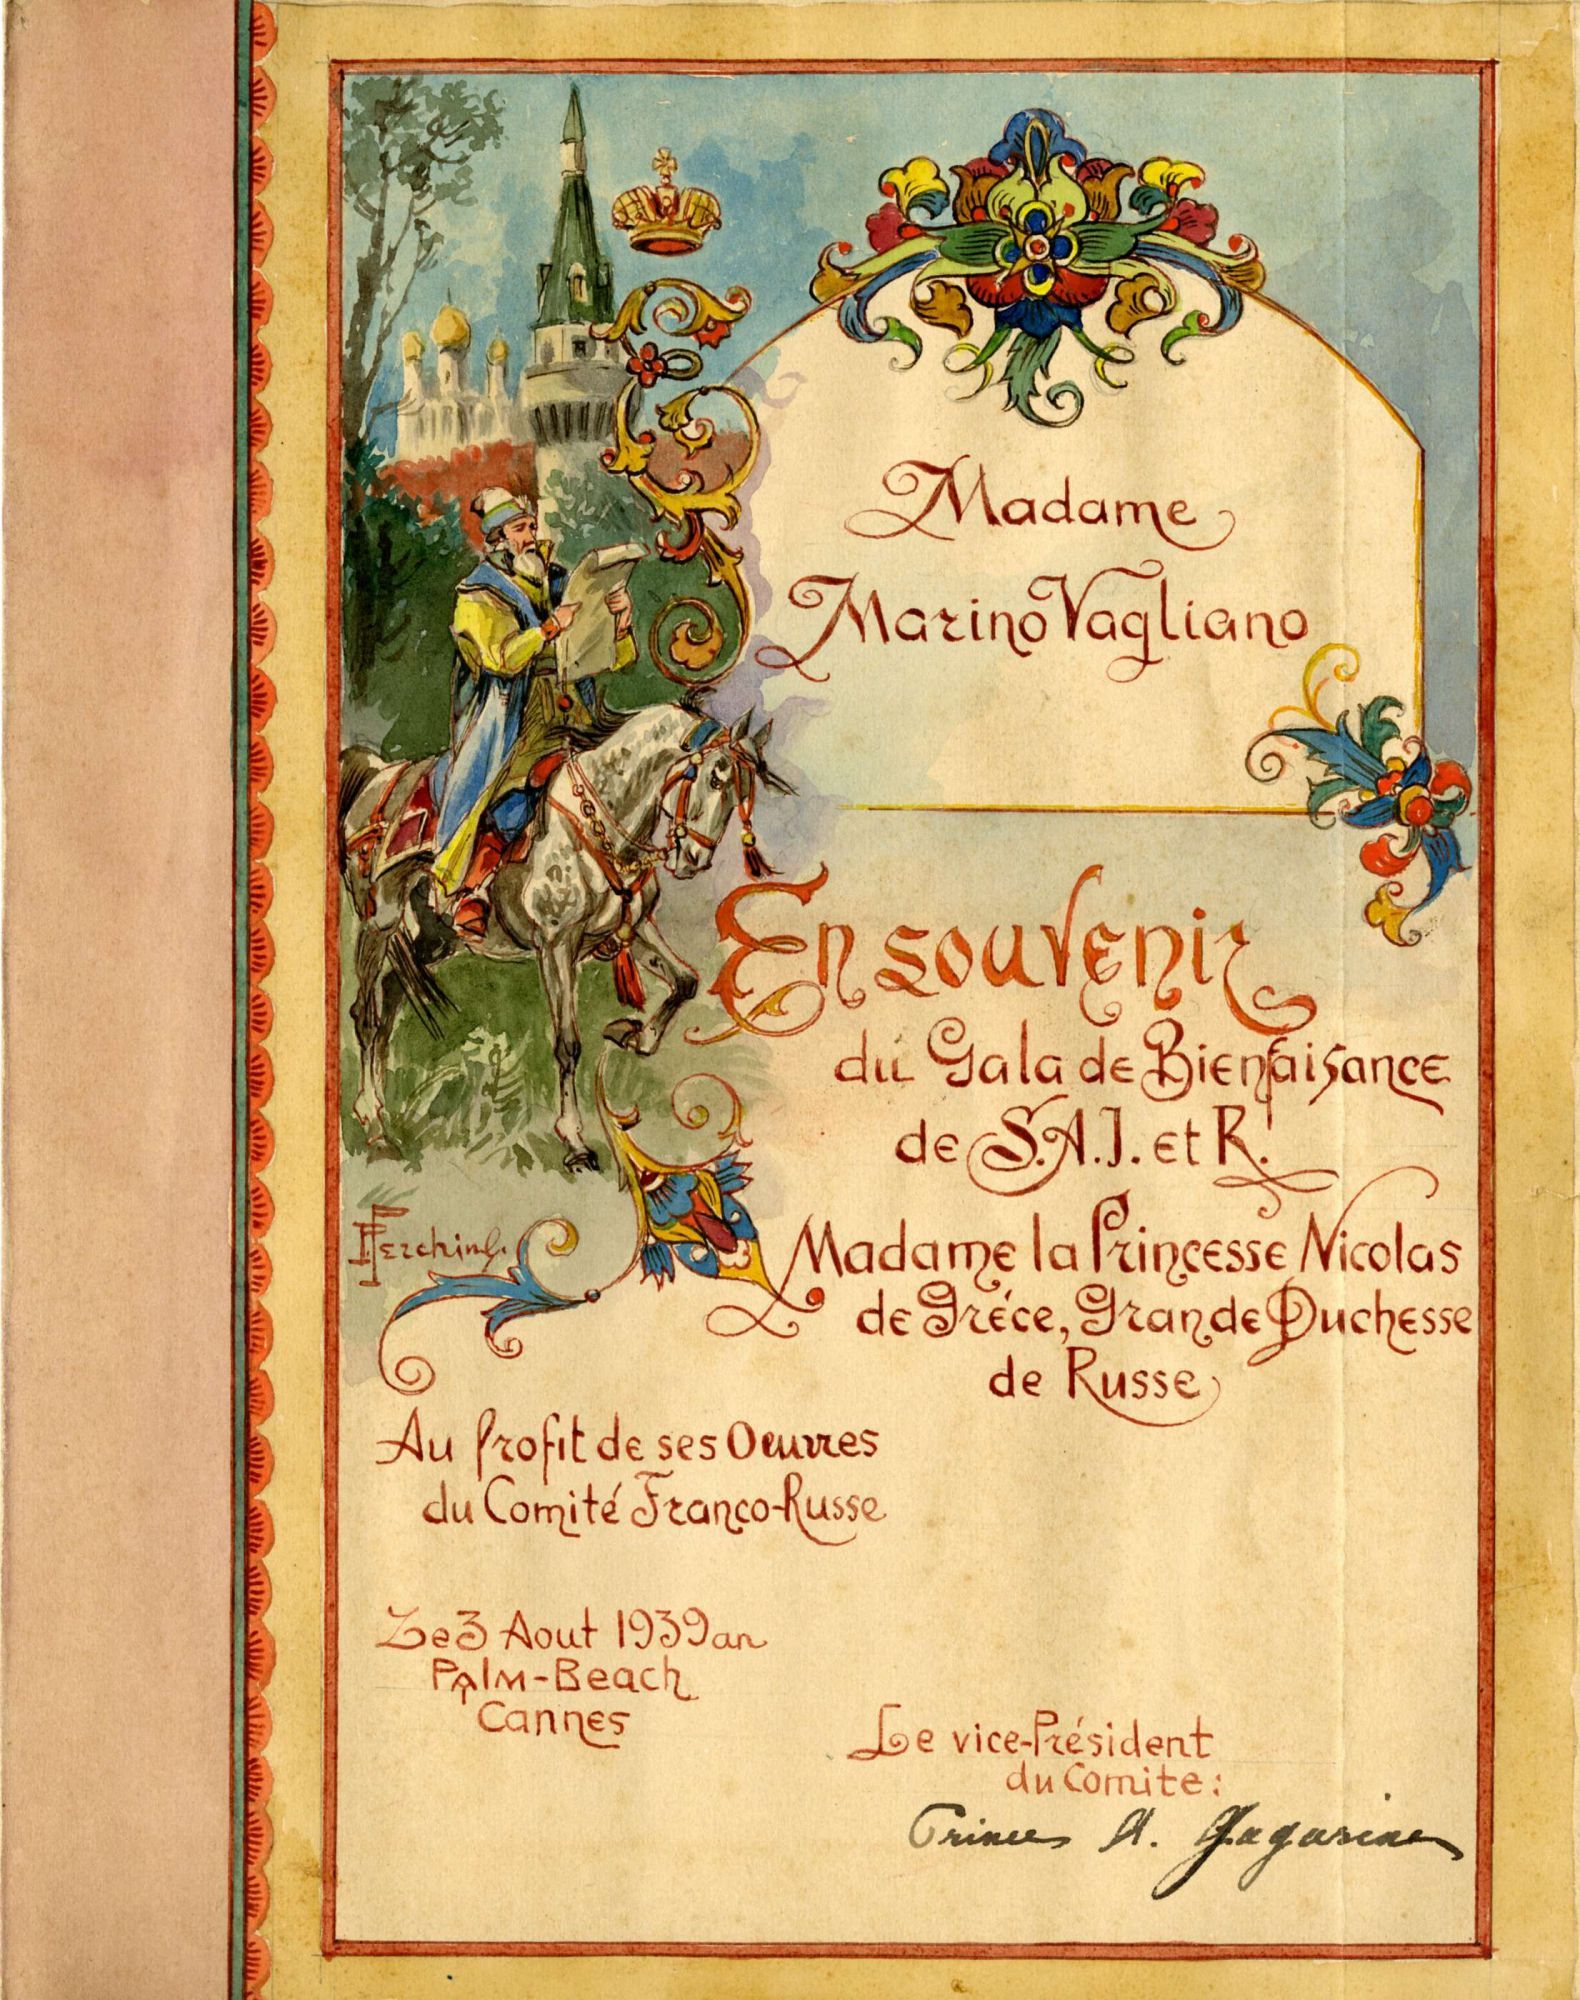 Madame
Marino Vagliano
En souvenir
du Gala de Bienfaisance
de S.A.I. et R.
Madame la Princesse Nicolas
de Gréce, Grande Duchesse
de Russe
Au profit de ses Oeuvres
du Comité Franco-Russe
Le 3 Aout 1939 an
Palm-Beach
Cannes
Le vice-Président
du Comite:
Prince A. Gagarine